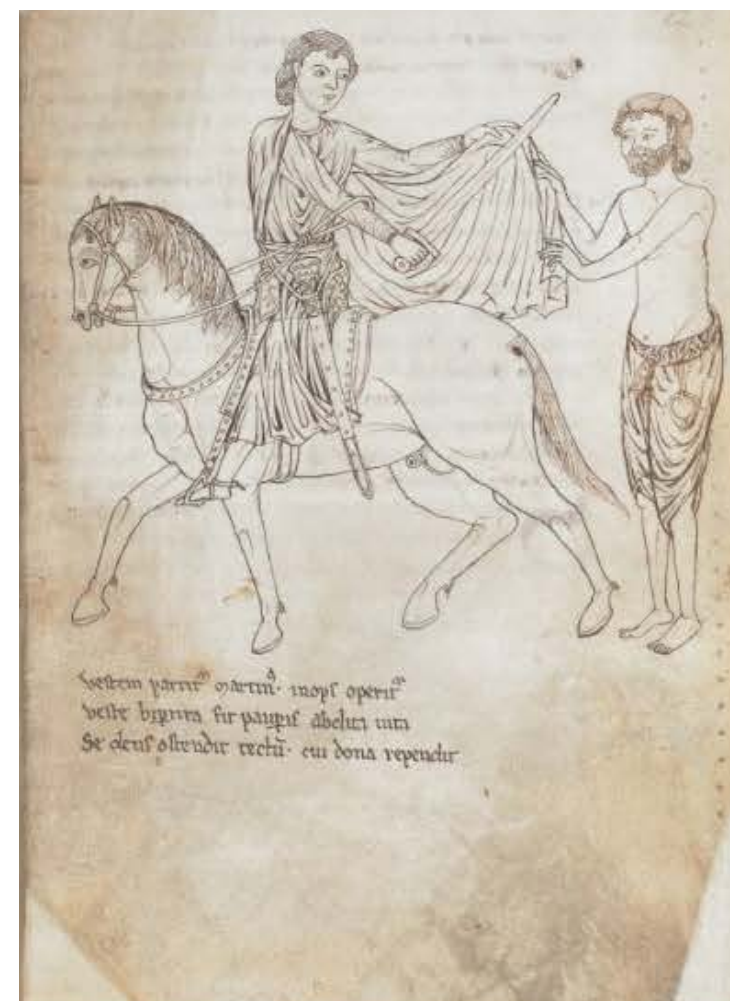 vestem partit᷒ martin᷒· inops operit᷒
veste bip̱tita fit paup̱is
Se deus ostendit tectū· cui dona rependit